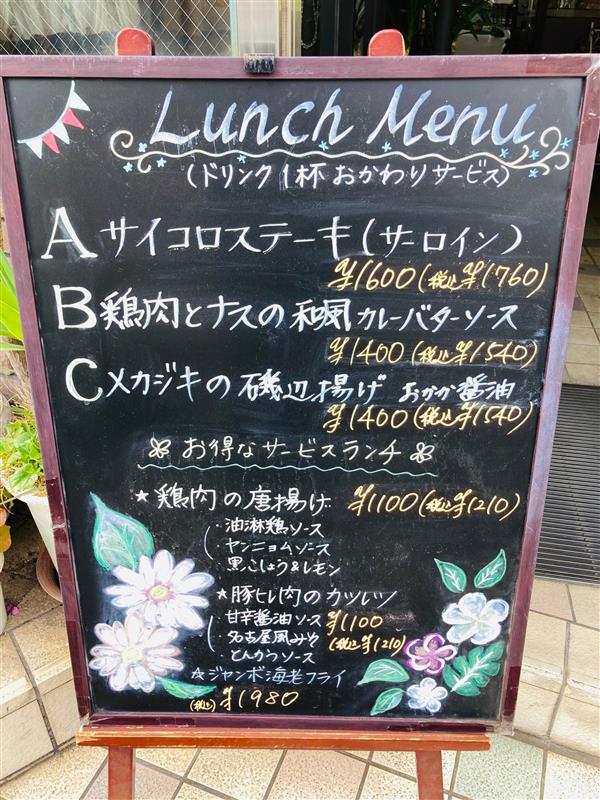 Lunch Menu
(ドリンク1杯おかわりサービス)
A サイコロステーキ(サーロイン)
¥1600(税込¥1760)
B 鶏肉とナスの和風カレーバターソース
¥1400(税込¥1540)
C メカジキの磯辺揚げ おかか醤油
¥1400(税込¥1540)
お得なサービスランチ
★鶏肉の唐揚げ ¥1100(税込¥1210)
・油淋鶏ソース
・ヤンニョムソース
・黒こしょう&レモン
★豚ヒレ肉のカツレツ
・甘辛醤油ソース ¥1100
・名古屋風みそ (税込¥1210)
・とんかつソース
☆ジャンボ海老フライ
(税込)¥1980